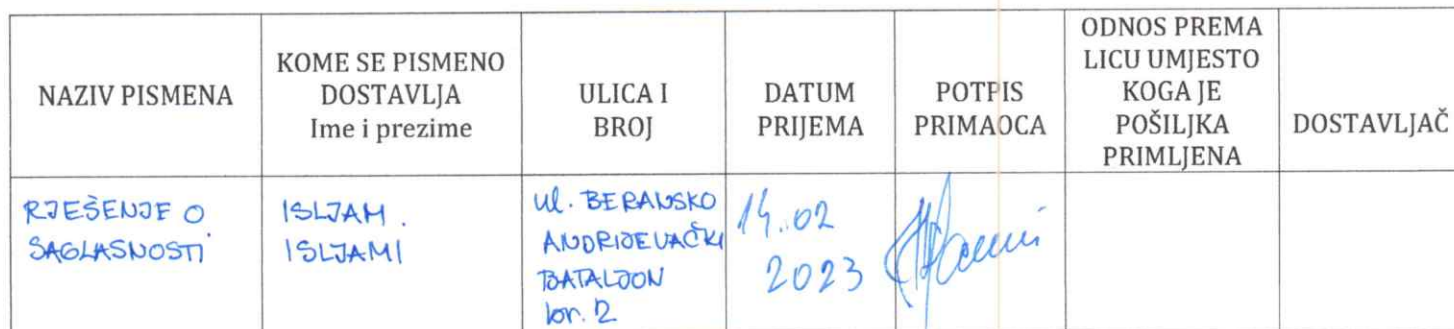 NAZIV PISMENA
KOME SE PISMENO
DOSTAVLJA
Ime i prezime
ULICA I
BROJ
DATUM
PRIJEMA
POTPIS
PRIMAOCA
ODNOS PREMA
LICU UMJESTO
KOGA JE
POŠILJKA
PRIMLJENA
DOSTAVLJAČ
RJEŠENJE O
SAGLASNOSTI
ISLJAM.
ISLJAMI
ul. BERANSKO
ANDRIJEVAČKI
BATALJON
br. 2
14.02
2023